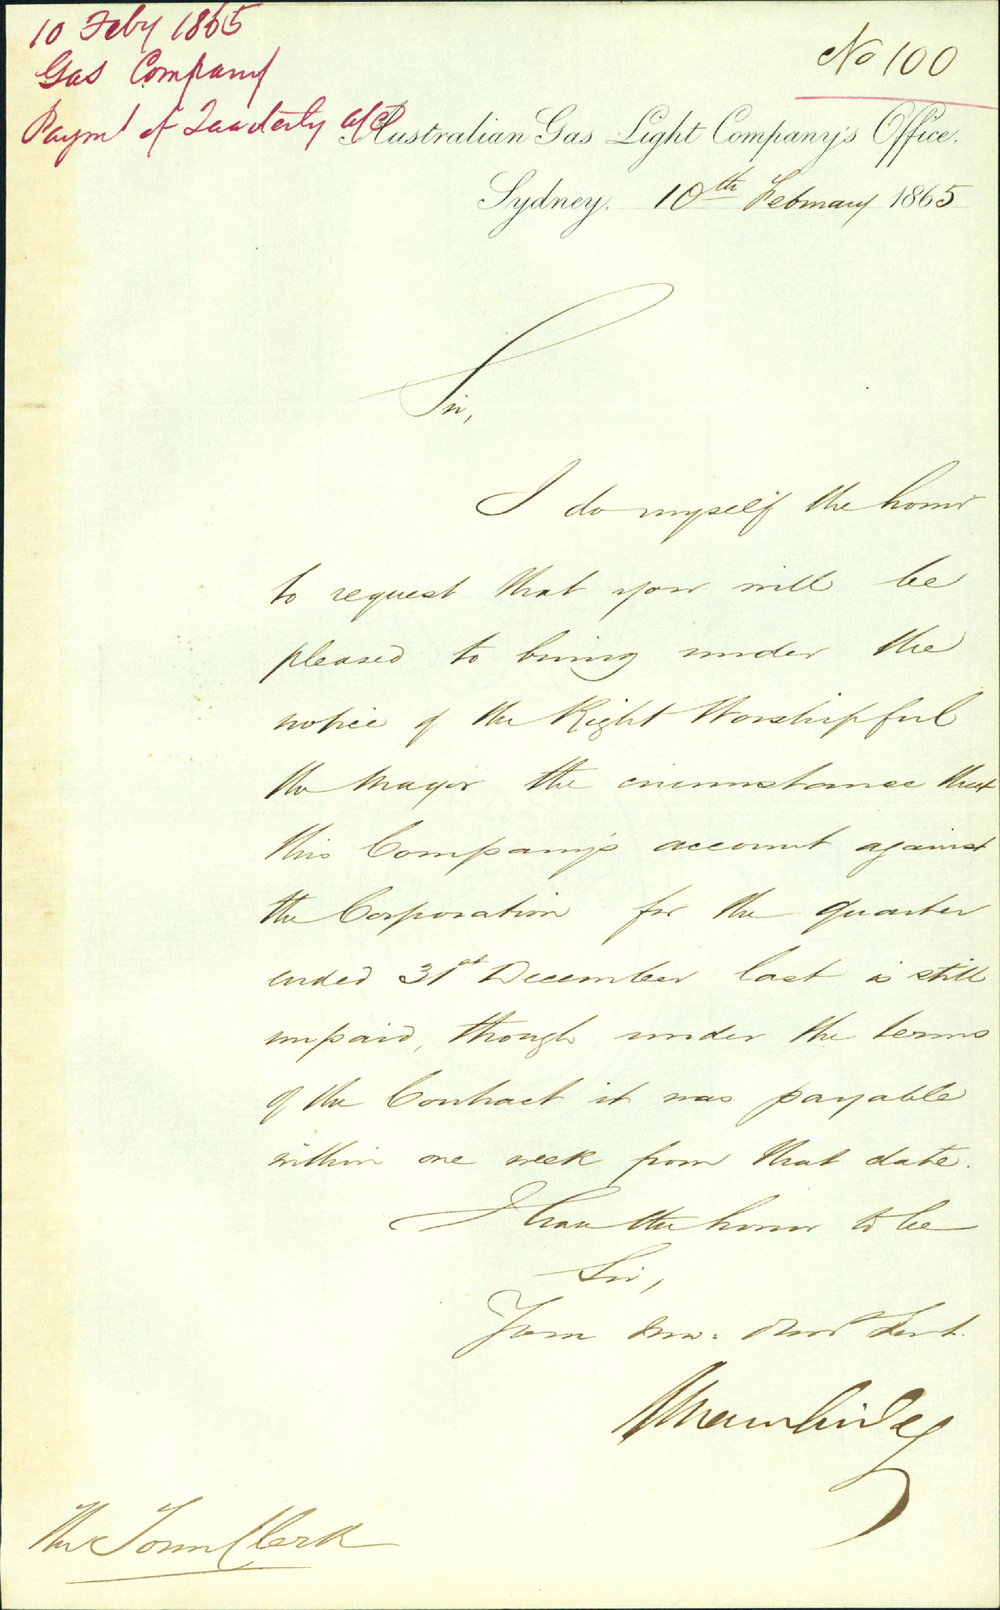 10 Feby 1865
Gas Company
Paymt of Quarterly a/c
No 100
Australian Gas Light Company's Office.
Sydney. 10th February 1865
Sir,
I do myself the honor
to request that you will be
pleased to bring under the
notice of the Right Worshipful
the Mayor the circumstance that
this Company's account against
the Corporation for the quarter
ended 31st December last is still
unpaid, though under the terms
of the Contract it was payable
within one week from that date.
I have the honor to be
Sir,
Your Mo: Obed Servt.
The Town Clerk